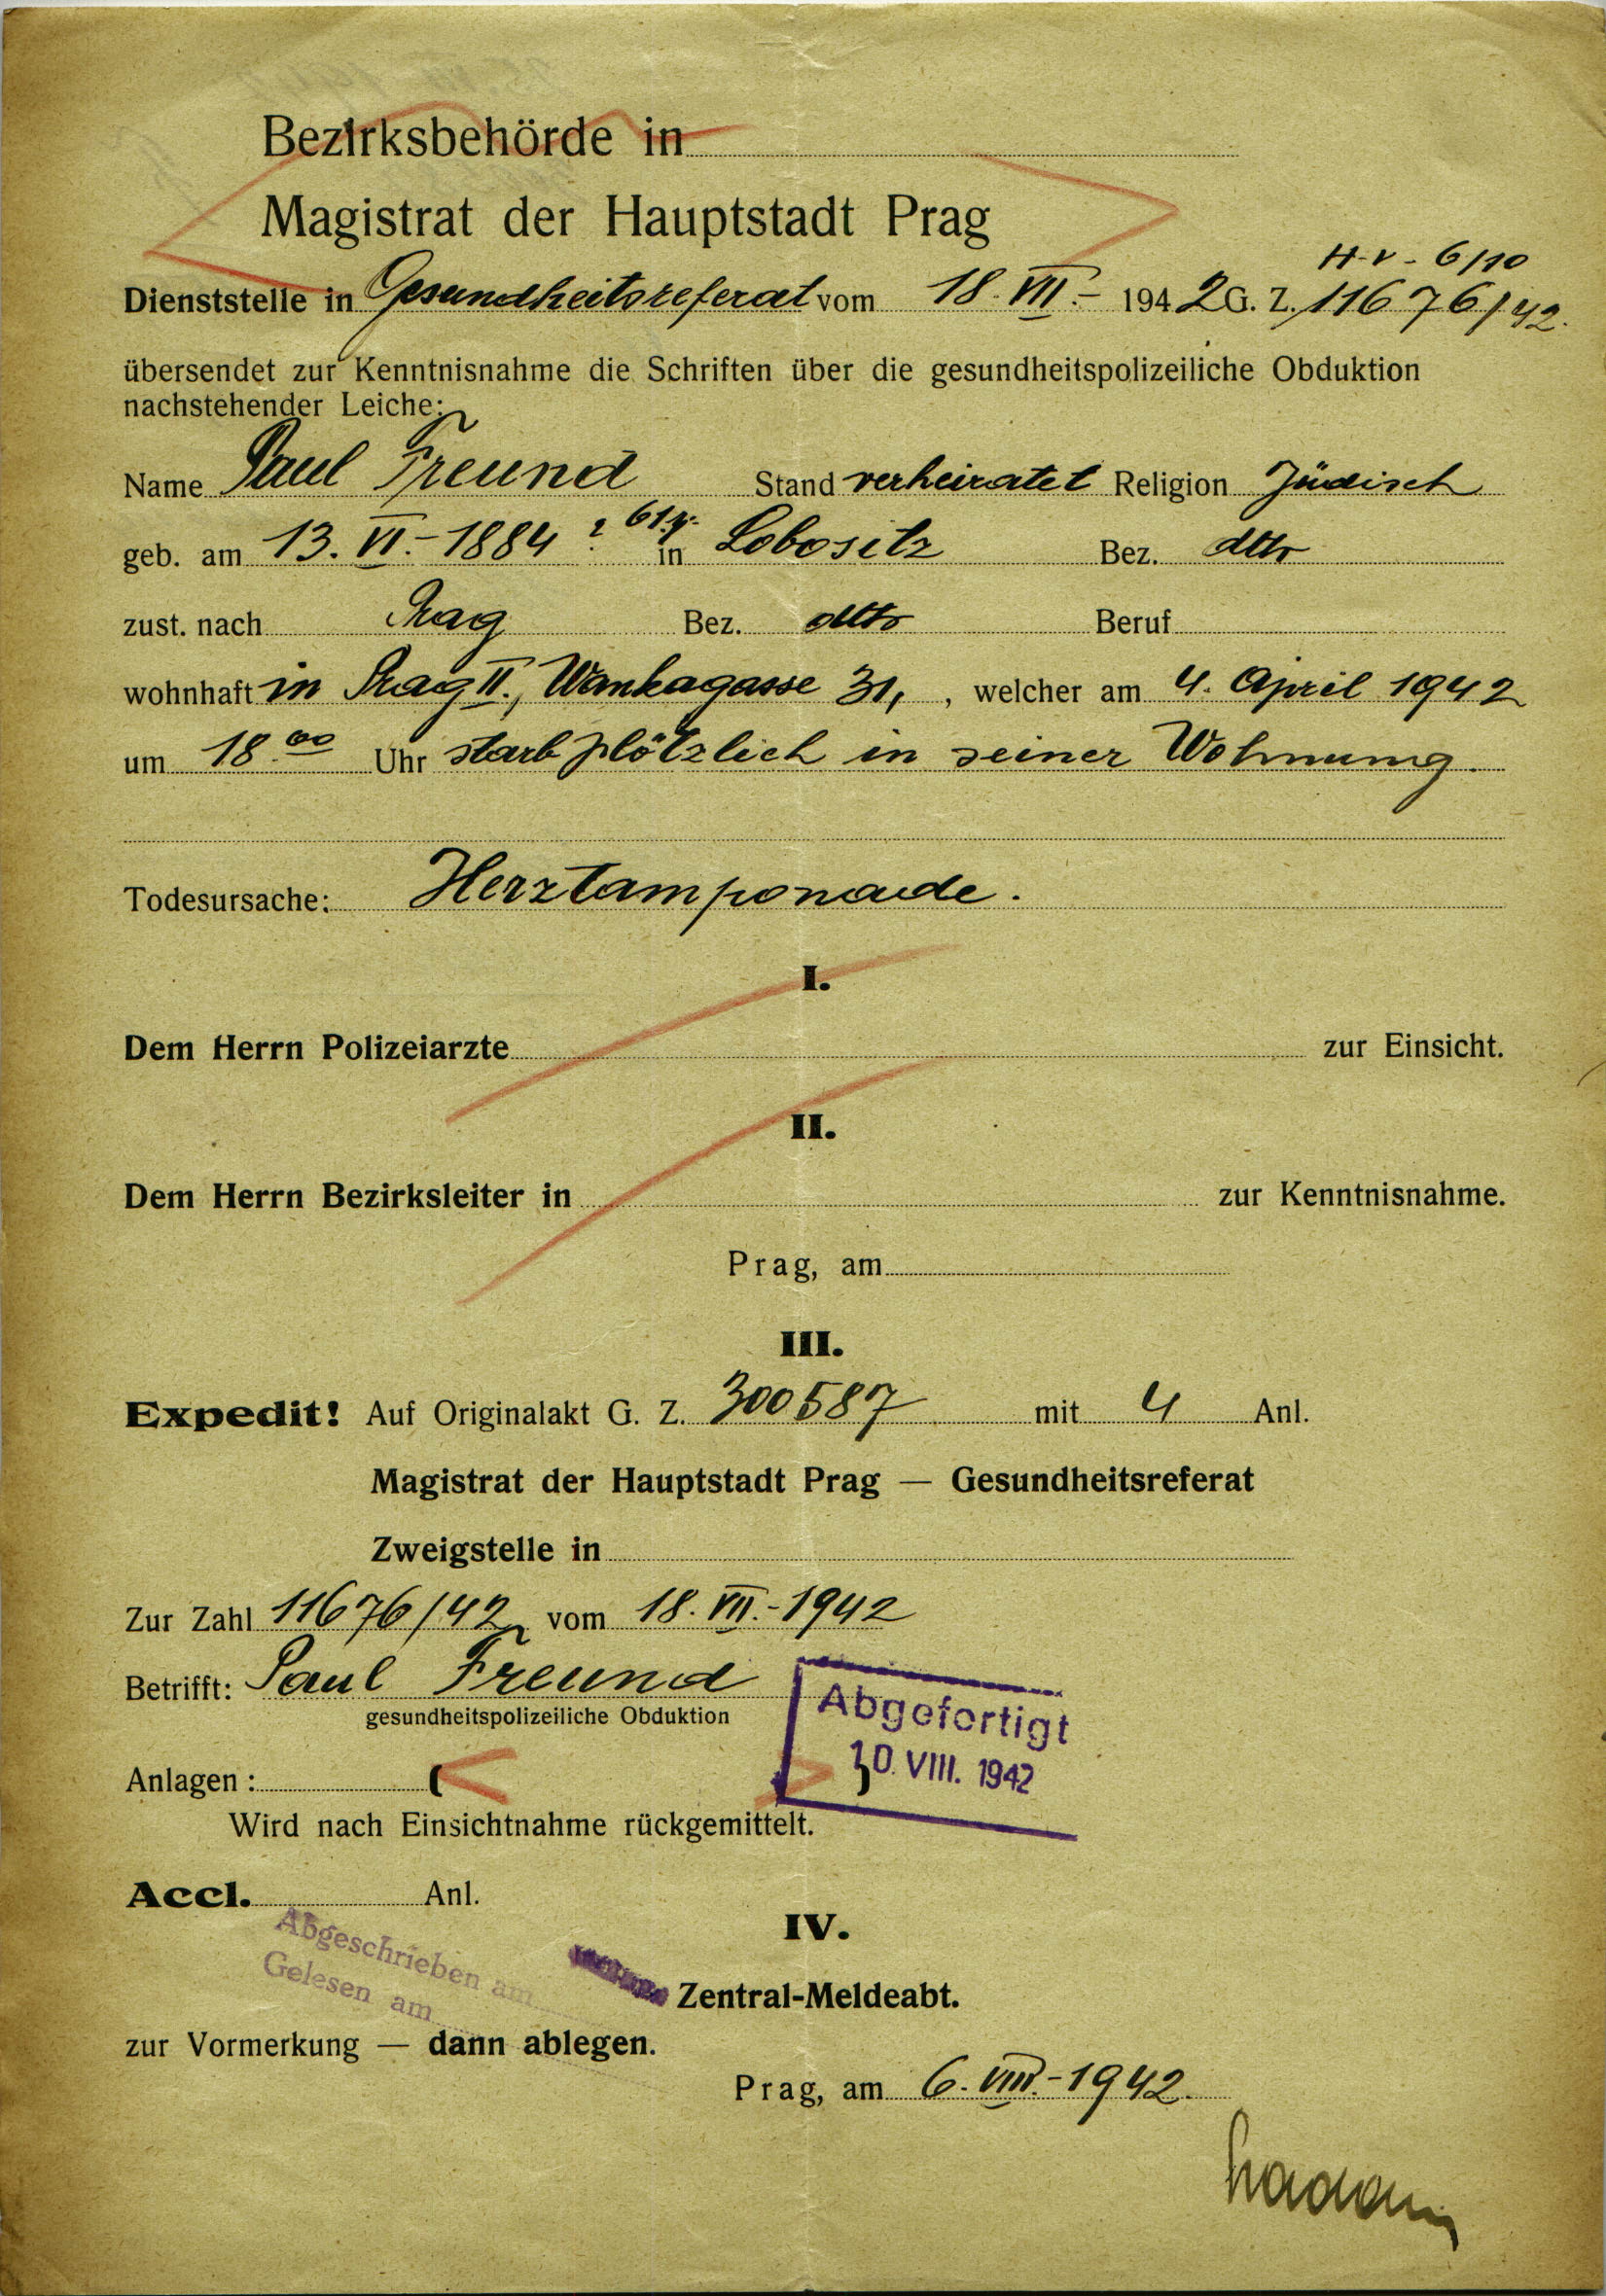 Bezirksbehörde in
Magistrat der Hauptstadt Prag
H-V- 6/10
Dienststelle in Gesundheitsreferat vom 18. VII.- 1942 G. Z. 11676/42.
übersendet zur Kenntnisnahme die Schriften über die gesundheitspolizeiliche Obduktion
nachstehender Leiche:
Name Paul Freund Stand verheiratet Religion Jüdisch
geb. am 13. VI.- 1884 ? in Lobositz Bez. dtto
zust. nach Prag Bez. dtto Beruf
wohnhaft in Prag II., Wankagasse 31, , welcher am 4. April 1942
um 18.00 Uhr starb plötzlich in seiner Wohnung.
Todesursache: Herztamponade.
I.
Dem Herrn Polizeiarzte zur Einsicht.
II.
Dem Herrn Bezirksleiter in zur Kenntnisnahme.
Prag, am
III.
Expedit! Auf Originalakt G. Z. 300587 mit 4 Anl.
Magistrat der Hauptstadt Prag — Gesundheitsreferat
Zweigstelle in
Zur Zahl 11676/42 vom 18. VII.- 1942
Betrifft: Paul Freund
gesundheitspolizeiliche Obduktion
Abgefertigt
10. VIII. 1942
Anlagen :
Wird nach Einsichtnahme rückgemittelt.
Accl. Anl.
IV.
Abgeschrieben am
Gelesen am
Zentral-Meldeabt.
zur Vormerkung — dann ablegen.
Prag, am 6. VIII.- 1942.